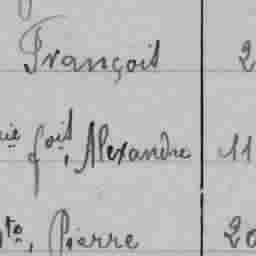 François 2
foit, Alexandre 11
te, Pierre 20